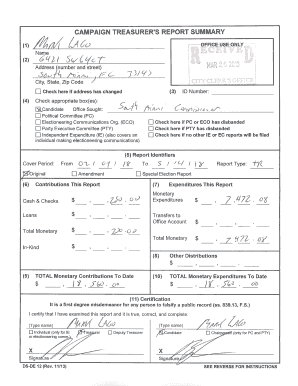 CAMPAIGN TREASURER'S REPORT SUMMARY
(1) Mark Lago
Name
OFFICE USE ONLY
(2)
Address (number and street)
South Miami, FL 33143
City, State, Zip Code
RECEIVED
CITY CLERK'S OFFICE
Check here if address has changed
(3) ID Number:
(4) Check appropriate box(es):
Candidate Office Sought: South Miami Commissioner
Political Committee (PC)
Electioneering Communications Org. (ECO)
Party Executive Committee (PTY)
Independent Expenditure (IE) (also covers an
individual making electioneering communications)
Check here if PC or ECO has disbanded
Check here if PTY has disbanded
Check here if no other IE or EC reports will be filed
(5) Report Identifiers
Cover Period: From / / 18 To 5 / 14 / 18 Report Type: TR
Original Amendment Special Election Report
(6) Contributions This Report
Cash & Checks $ 250.00
Loans $
Total Monetary $ 250.00
In-Kind $
(7) Expenditures This Report
Monetary
Expenditures $ 7,472.08
Transfers to
Office Account $
Total Monetary $ 7,472.08
(8) Other Distributions
$
(9) TOTAL Monetary Contributions To Date
$ 18,560.00
(10) TOTAL Monetary Expenditures To Date
$ 18,560.00
(11) Certification
It is a first degree misdemeanor for any person to falsify a public record (ss. 839.13, F.S.)
I certify that I have examined this report and it is true, correct, and complete:
(Type name) Mark Lago
Individual (only for IE
or electioneering comm.)
Treasurer Deputy Treasurer
X
Signature
(Type name) Mark Lago
Candidate Chairperson (only for PC and PTY)
X
Signature
DS-DE 12 (Rev. 11/13)
SEE REVERSE FOR INSTRUCTIONS